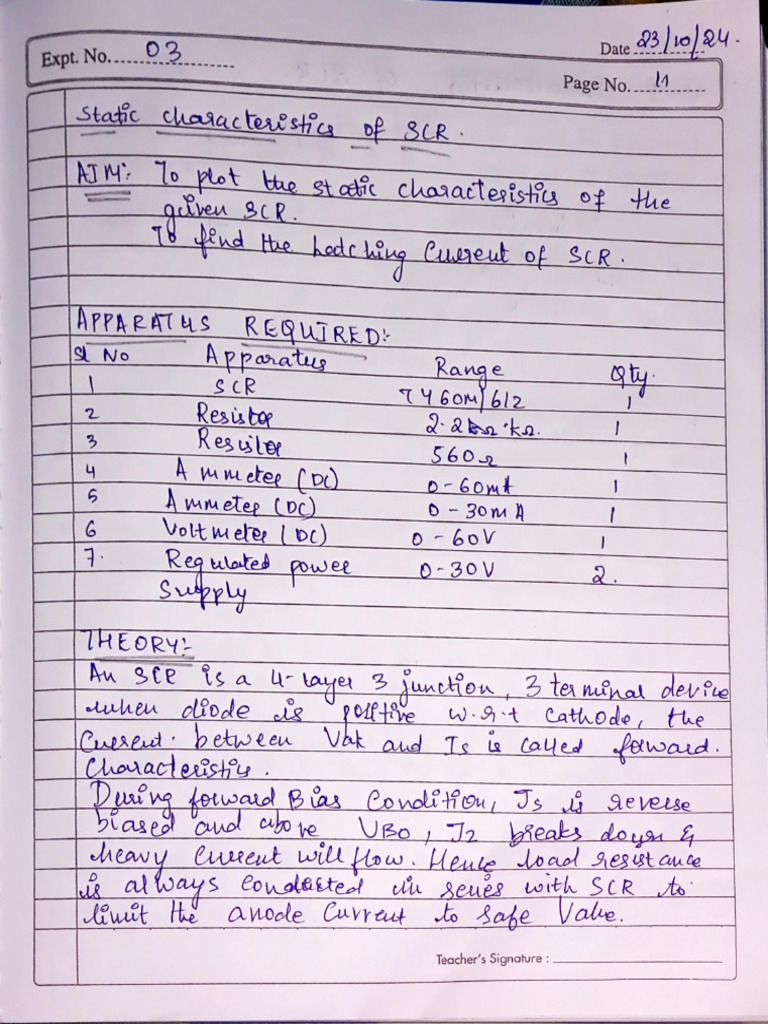 Expt. No. 03
Date 23/10/24.
Page No. 11
Static characteristics of SCR.
AIM:- To plot the static characteristics of the
given SCR.
To find the Latching Current of SCR.
APPARATUS REQUIRED:-
Sl No Apparatus Range Qty.
1 SCR TY60M/612 1
2 Resistor 2.2 kΩ. 1
3 Resistor 560Ω 1
4 Ammeter (DC) 0-60mA 1
5 Ammeter (DC) 0-30mA 1
6 Voltmeter (DC) 0-60V 1
7. Regulated power 0-30V 2.
Supply
THEORY:-
An SCR is a 4-layer 3 junction, 3 terminal device
when diode is positive w.r.t cathode, the
Current. between Vak and Is is called forward.
Characteristic.
During forward Bias Condition, Js is reverse
biased and above VBO, J2 breaks down &
heavy Current will flow. Hence load resistance
is always conducted in series with SCR to
limit the anode Current to safe Value.
Teacher's Signature :